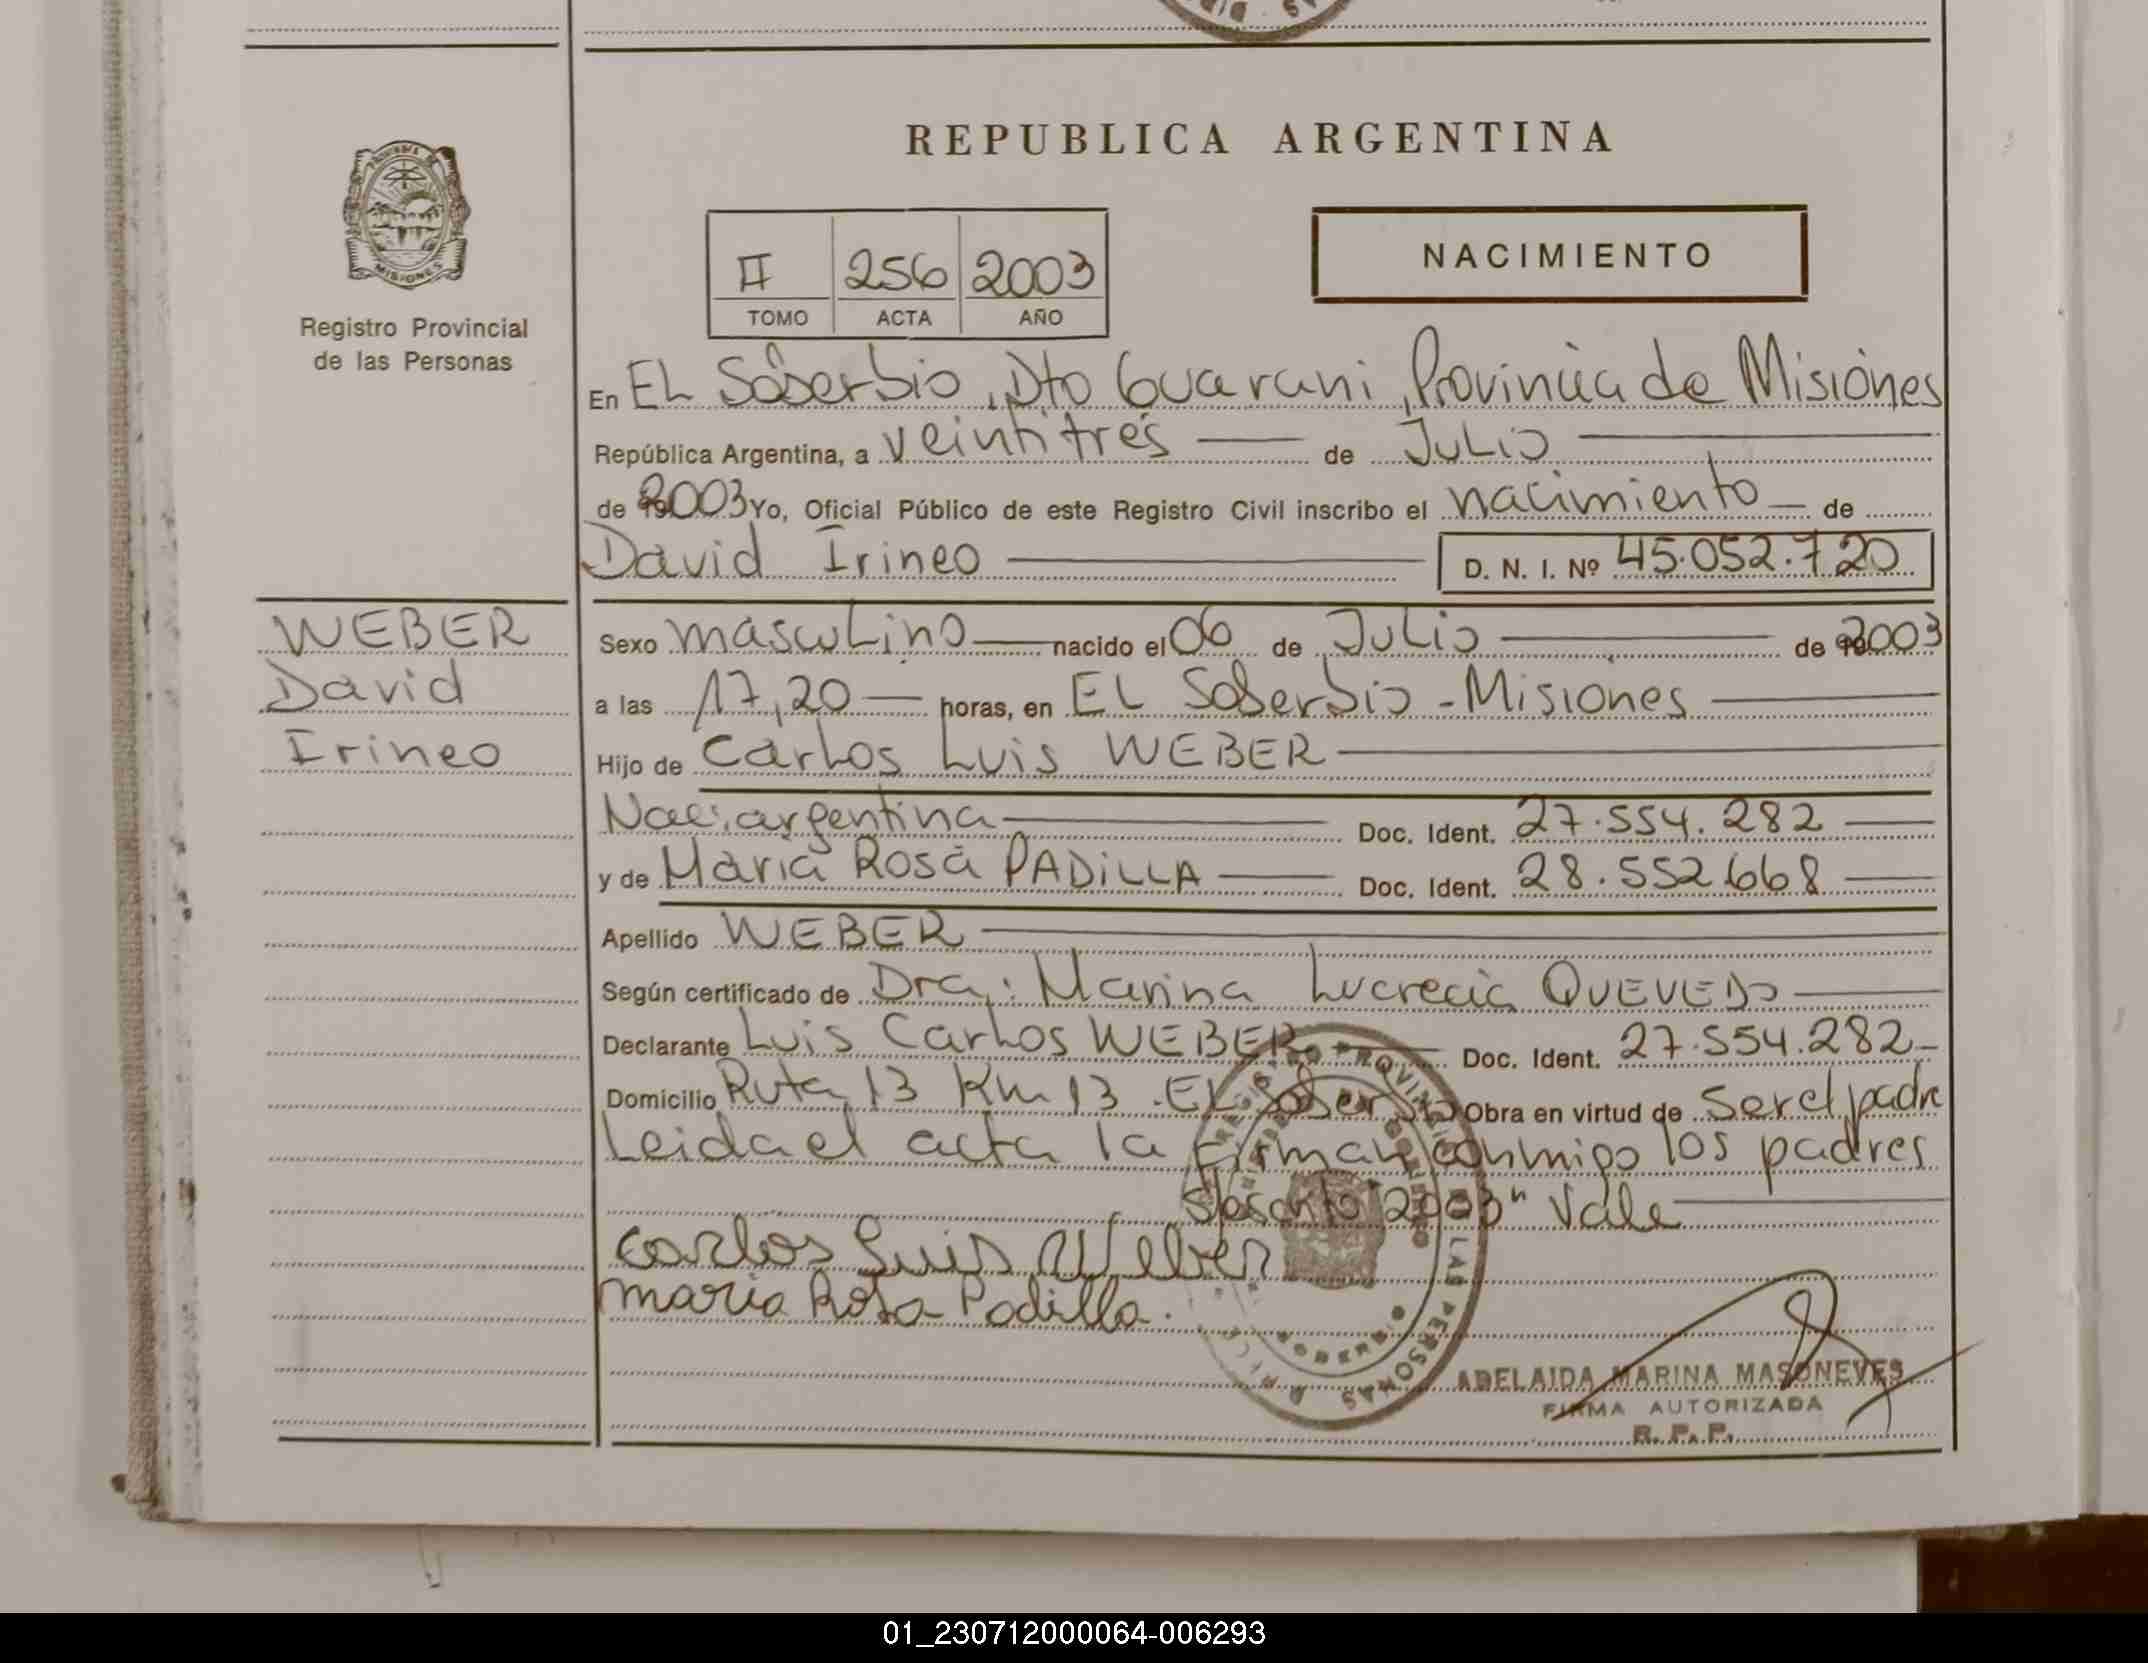 REPUBLICA ARGENTINA
PROVINCIA DE
MISIONES
Registro Provincial
de las Personas
II 256 2003
TOMO ACTA AÑO
NACIMIENTO
En EL Soberbio, Dto Guarani, Provincia de Misiones
República Argentina, a veintitrés de Julio
de 2003 Yo, Oficial Público de este Registro Civil inscribo el nacimiento de
David Irineo D. N. I. Nº 45.052.720
WEBER
David
Irineo
Sexo masculino nacido el 06 de Julio de 2003
a las 17,20 horas, en EL Soberbio - Misiones
Hijo de Carlos Luis WEBER
Nac: argentina Doc. Ident. 27.554.282
y de Maria Rosa PADILLA Doc. Ident. 28.552.668
Apellido WEBER
Según certificado de Dra: Marina Lucrecia QUEVEDO
Declarante Luis Carlos WEBER Doc. Ident. 27.554.282
Domicilio Ruta 13 Km 13 . EL Soberbio Obra en virtud de ser el padre
Leida el acta la firman conmigo los padres
2003" Vale
Carlos Luis Weber
maria Rosa Padilla.
ADELAIDA MARINA MASONEVES
FIRMA AUTORIZADA
R. P. P.
01_230712000064-006293